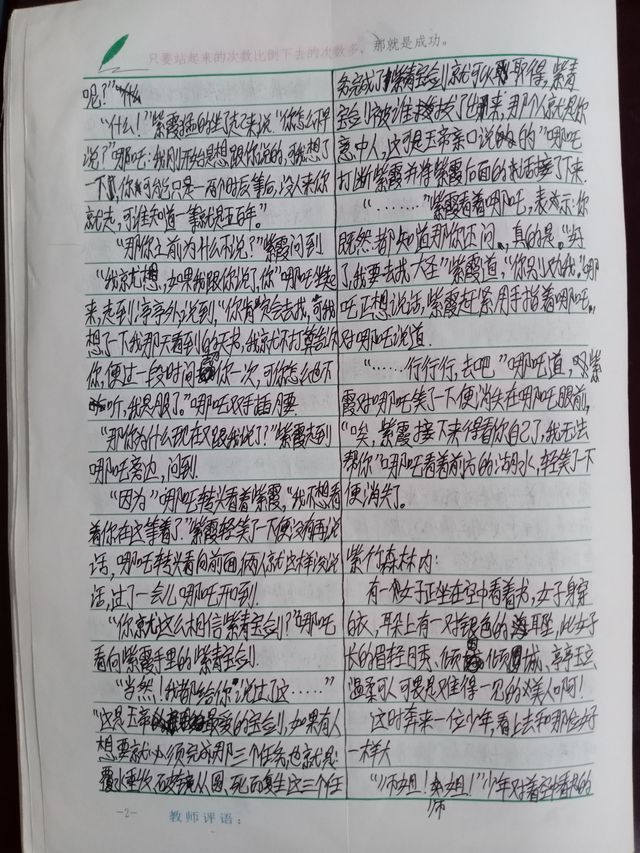 只要站起来的次数比倒下去的次数多，那就是成功。
呢？”
“什么！”紫霞猛的坐了起来说“你怎么不早
说？”哪吒：我刚开始是想跟你说的，可我想了
一下，你可能只是一两个时辰等后，没人来你
就走，可谁知道一等就是五百年。”
“那你之前为什么不说？”紫霞问到
“我就想，如果我跟你说了，你”哪吒坐起
来，走到亭亭外说到，“你肯定会去找，可我
想了一下我那天看到的天书，我就不打算告诉
你，便过一段时间你一次，可你怎么也不
听，我是服了。”哪吒双手插腰
“那你为什么现在又跟我说了？”紫霞走到
哪吒旁边，问到
“因为”哪吒转头看着紫霞，“我不想看
着你在这等着了”紫霞轻笑了一下便没有再说
话，哪吒转头看向前面俩人就这样没说
话，过了一会儿哪吒开口到
“你就这么相信紫青宝剑？”哪吒
看向紫霞手里的紫青宝剑
“当然！我都给你说过了这……”
“这是玉帝最爱的宝剑，如果有人
想要就必须完成那三个任务，也就是：
覆水重收、破镜从圆、死而复生这三个任
务完成了紫青宝剑就可以取得，紫青
宝剑被谁拔了出来，那个人就是你
意中人，这可是玉帝亲口说的”哪吒
打断紫霞并将紫霞后面的话接了下来
“………”紫霞看着哪吒，表示：你
既然都知道那你还问，真的是。“好
了，我要去找大圣”紫霞道，“你别以为。”哪
吒正想说话，紫霞赶紧用手指着哪吒。
对哪吒说道
“……行行行，去吧”哪吒道，紫
霞对哪吒笑了一下便消失在哪吒眼前，
“唉，紫霞接下来得看你自己了，我无法
帮你”哪吒看着前方的湖水，轻笑了一下
便消失了。
紫竹森林内：
有一个女子正坐在空中看着书，女子身穿
白衣，耳朵上有一对银色的耳坠，此女子
长的眉轻目秀、倾国倾城、亭亭玉立
温柔可人可畏是难得一见的美人啊！
这时奔来一位少年，看上去和那位女子
一样大
“师姐！师姐！”少年对着空中看书的
-2- 教师评语：